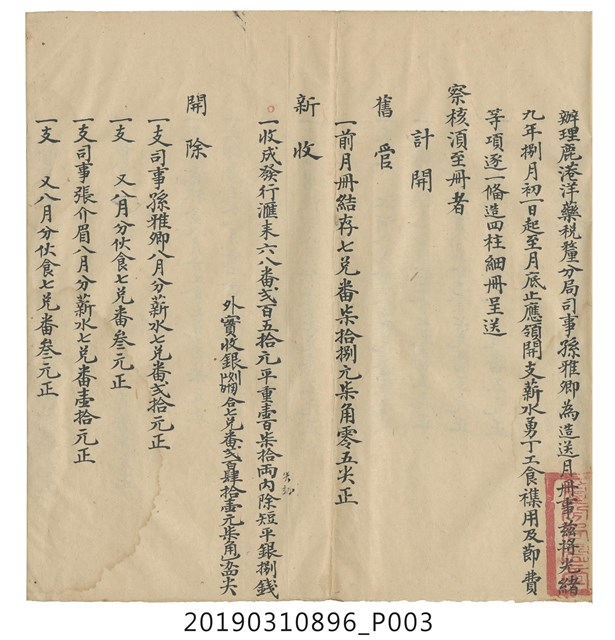 辦理鹿港洋藥稅釐分局司事孫雅卿為造送月冊事茲將光緒
九年捌月初一日起至月底止應領開支薪水勇丁工食襍用及節費
等項逐一備造四柱細冊呈送
察核須至冊者
計開
舊管
一前月冊結存七兌番柒拾捌元柒角零五尖正
新收
一收成發行滙來六八番弍百五拾元平重壹百柒拾両內除短平銀捌錢
外實收銀 合七兌番弍百肆拾壹元柒角 尖
開除
一支司事孫雅卿八月分薪水七兌番弍拾元正
一支 又八月分伙食七兌番叁元正
一支司事張介眉八月分薪水七兌番壹拾元正
一支 又八月分伙食七兌番叁元正
20190310896_P003